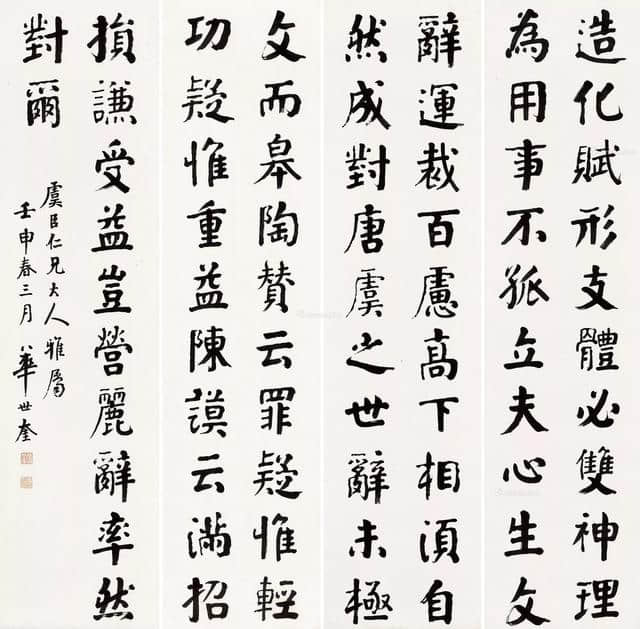 造化賦形支體必雙神理
為用事不孤立夫心生文
辭運裁百慮高下相湏自
然成對唐虞之世辭未極
文而皋陶贊云罪疑惟輕
功疑惟重益陳謨云滿招
損謙受益豈營麗辭率然
對爾
虞臣仁兄大人雅屬
壬申春三月 華世奎